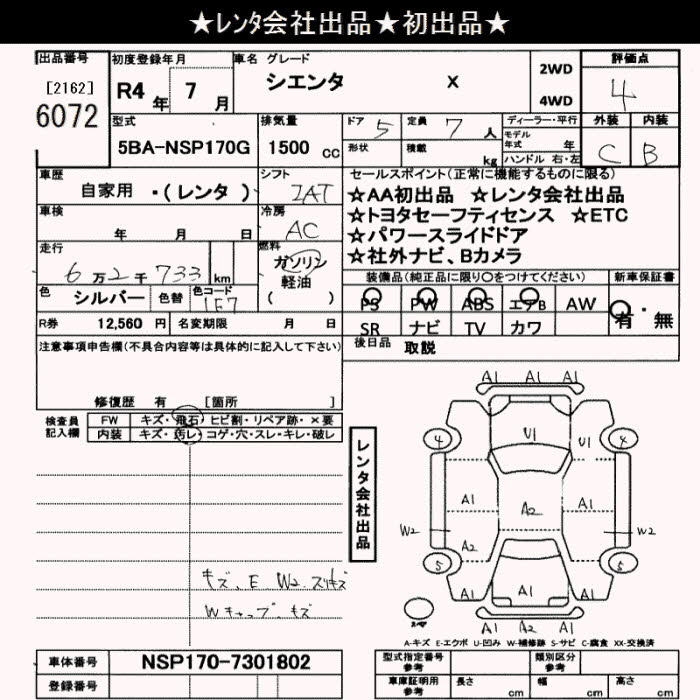 ★レンタ会社出品★初出品★
出品番号 初度登録年月 車名 グレード 評価点
[2162]
6072
R4年 7月 シエンタ X 2WD 4WD 4
型式 排気量 ドア 5 定員 7人 ディーラー・平行 外装 内装
モデル年式 年
5BA-NSP170G 1500cc 形状 積載 kg ハンドル 右・左 C B
車歴 シフト セールスポイント(正常に機能するものに限る)
自家用 ・(レンタ) IAT ★AA初出品 ★レンタ会社出品
車検 冷房 ★トヨタセーフティセンス ★ETC
年 月 日 AC ★パワースライドドア
走行 燃料 ★社外ナビ、Bカメラ
6万2千733km ガソリン 軽油 ( )
装備品(純正品に限り○をつけてください) 新車保証書
色 シルバー 色替 色コード 1F7 PS PW ABS エアB AW 有・無
R券 12,560円 名変期限 月 日 SR ナビ TV カワ
注意事項申告欄(不具合内容等は具体的に記入して下さい) 後日品 取説
修復歴 有 [箇所 ]
検査員記入欄 FW キズ・飛石・ヒビ割・リペア跡・×要
内装 キズ・汚レ・コゲ・穴・スレ・キレ・破レ
レンタ会社出品
A1 A1 A1
A1 A1
4 U1 U1 4
A1 A1
A2
W2 W2
A2
5 5
A1 A1 A1
A1 A1 A1
キズ、E W2、スリキズ
Wキャップ、キズ
スペア
A-キズ E-エクボ U-凹み W-補修跡 S-サビ C-腐食 XX-交換済
車体番号 NSP170-7301802 型式指定番号 参考 類別区分 参考
登録番号 車庫証明用 参考 長さ cm 幅 cm 高さ cm